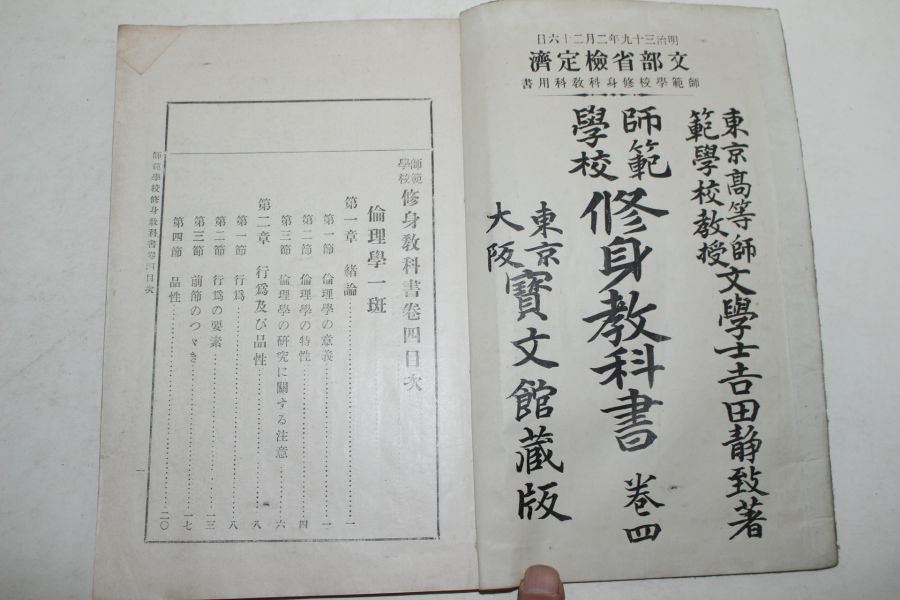 明治三十九年二月二十六日
文部省檢定濟
師範學校修身科敎科用書
東京高等師範學校敎授
文學士吉田静致著
師範學校
修身教科書 卷四
東京
大阪
寶文館蔵版
師範學校 修身敎科書卷四目次
倫理學一斑
第一章 緒論……一
第一節 倫理學の意義……一
第二節 倫理學の特性……四
第三節 倫理學の研究に關する注意……六
第二章 行爲及び品性……八
第一節 行爲……八
第二節 行爲の要素……一三
第三節 前節のつゞき……一七
第四節 品性……二〇
師範學校修身敎科書卷四目次
一